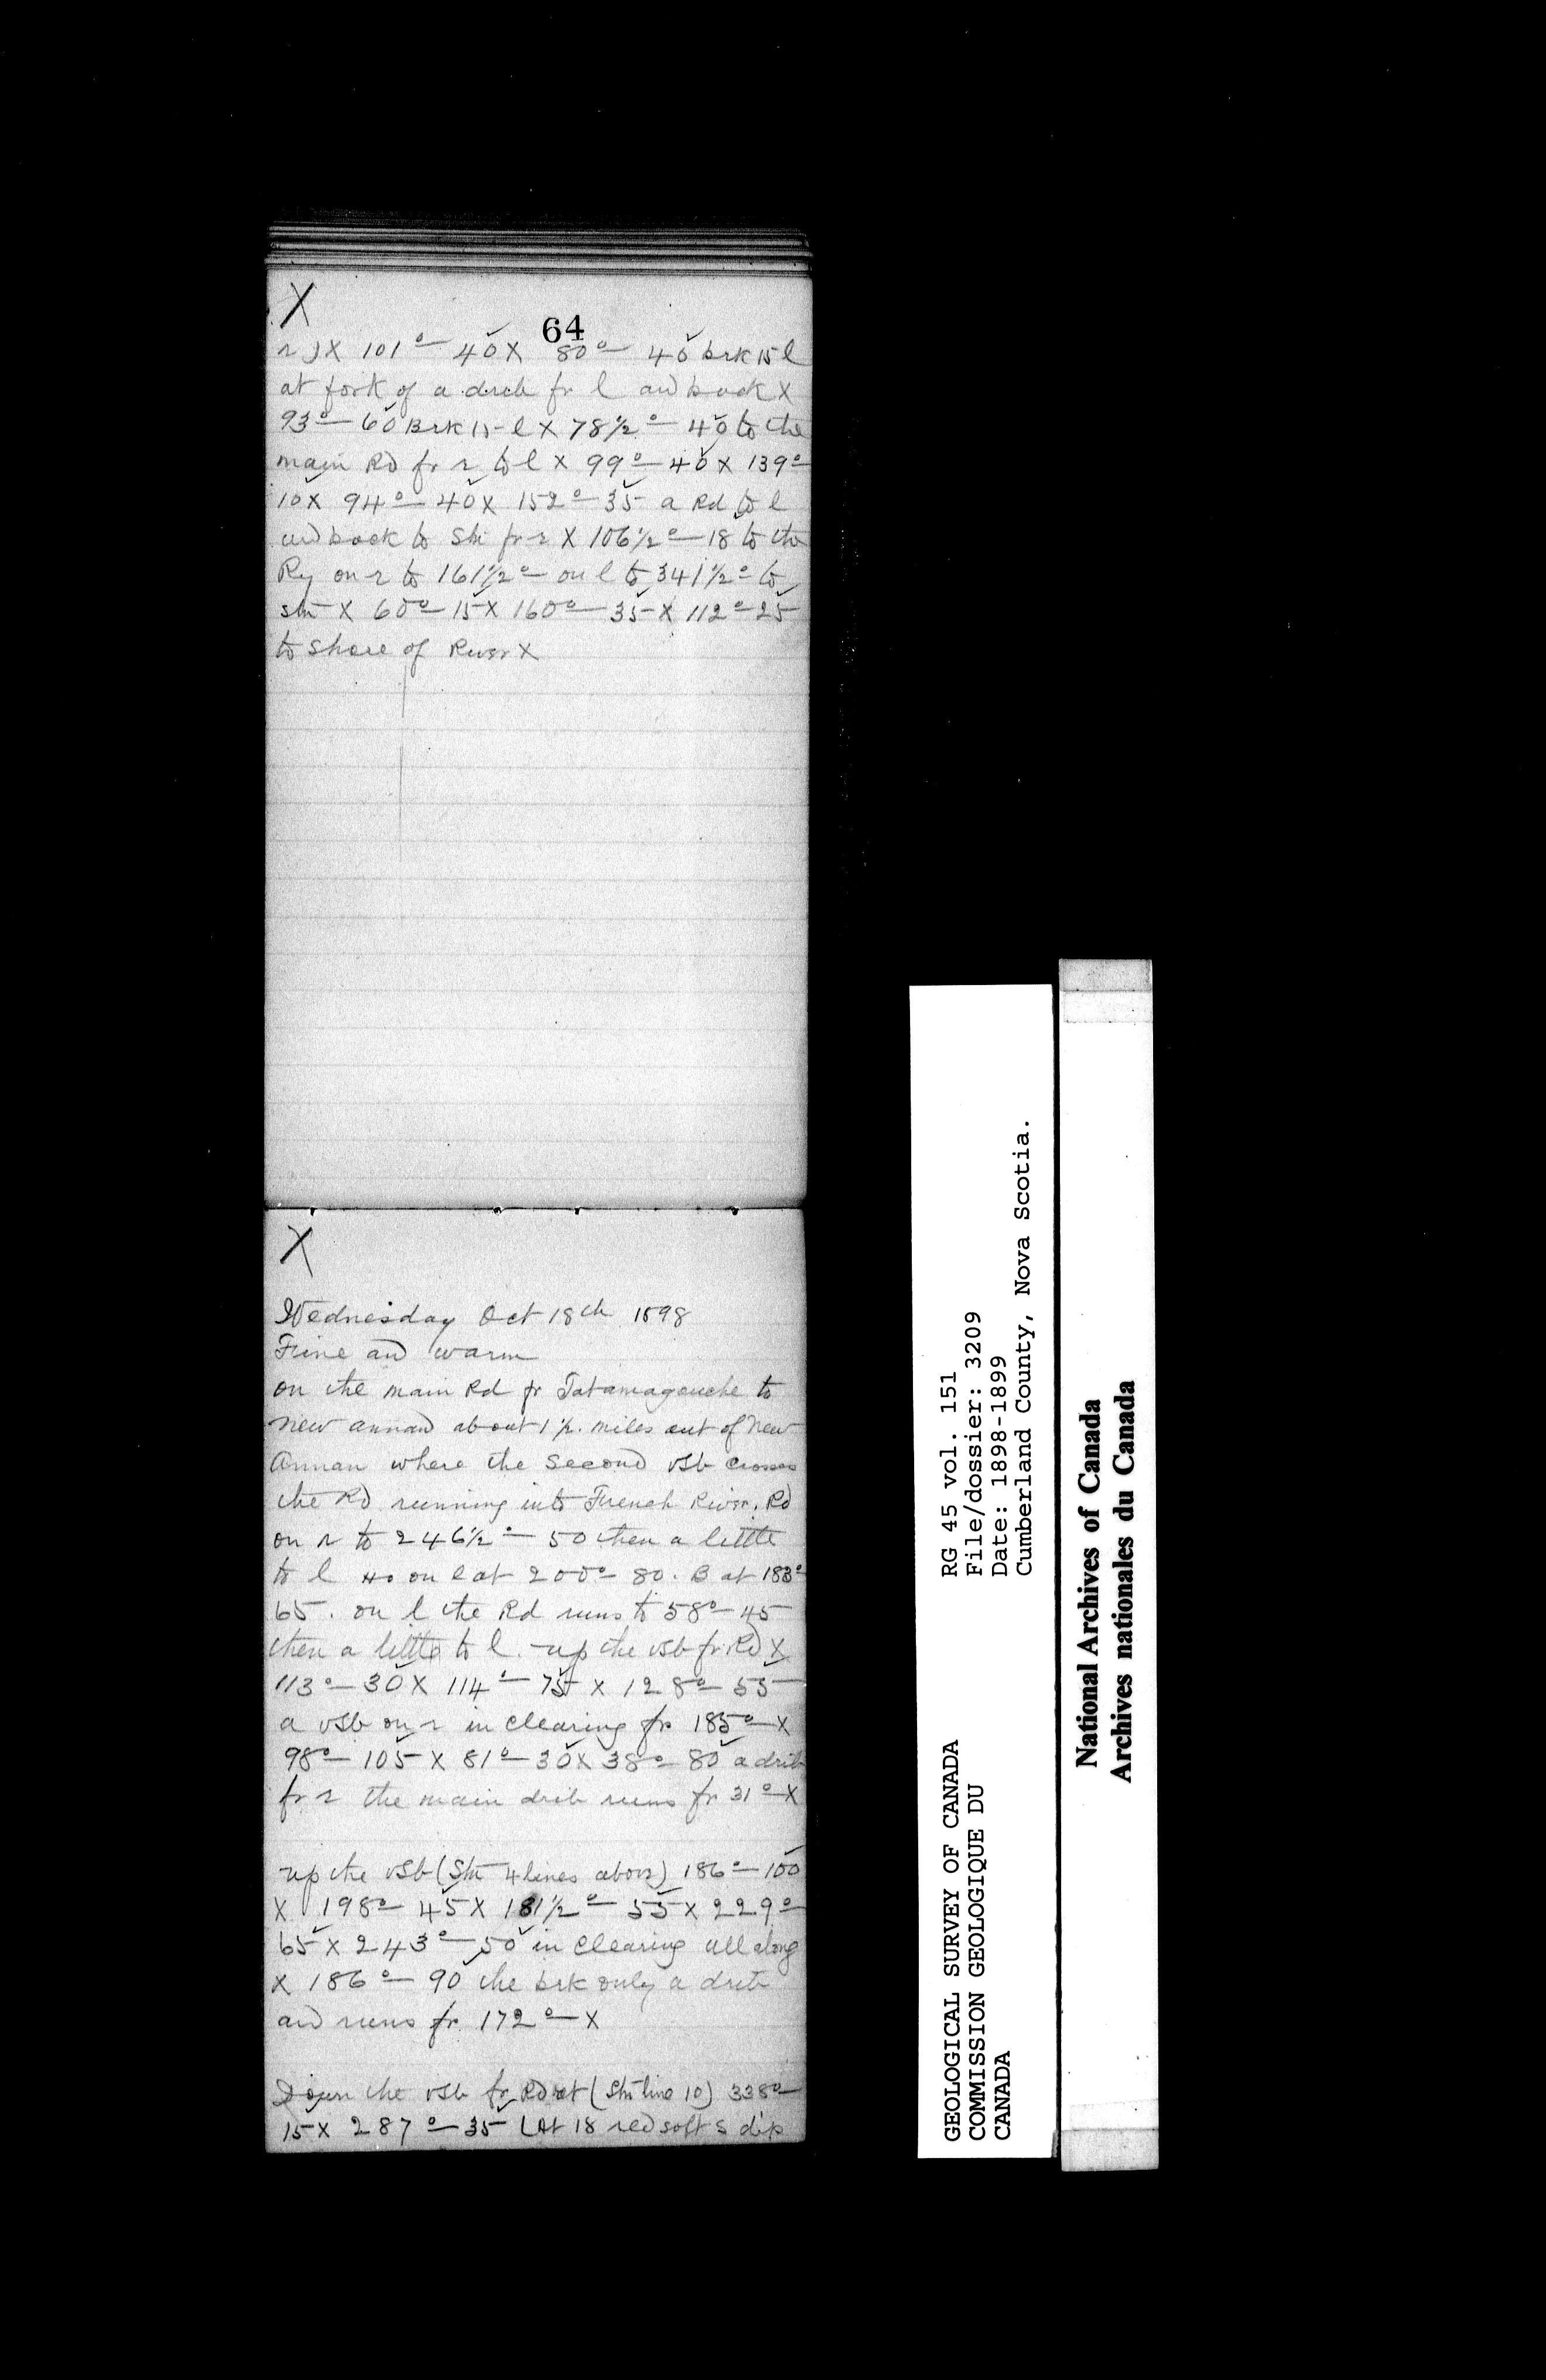 X
64
r) X 101° — 40 X 80° — 40 brk 15 l
at fork of a drib fr l and back X
93° — 60 Brk 15 - l X 78½° — 40 to the
main Rd fr r to l X 99° — 40 X 139° —
10 X 94° — 40 X 152° — 35 a Rd to l
and back to Stn fr r X 106½° — 18 to the
Ry on r to 161½° — on l to 341½° to
stn X 60° — 15 X 160° — 35 X 112° — 25
to Shore of River X
X
Wednesday Oct 18th 1898
Fine and warm
on the main Rd fr Tatamagouche to
New annan about 1½ miles out of New
Annan where the second vsb crosses
the Rd running into French River. Rd
on r to 246½° — 50 then a little
to l Ho on l at 200° — 80. B at 183° —
65. on l the Rd runs to 58° — 45
then a little to l. up the vsb fr Rd X
113° — 30 X 114° — 75 X 128° — 55
a vsb on r in clearing fr 185° — X
98° — 105 X 81° — 30 X 38° — 80 a drib
fr r the main drib runs fr 31° — X
up the vsb (Stn 4 lines above) 186° — 100
X 198° — 45 X 181½° — 55 X 229° —
65 X 243° — 50 in clearing all along
X 186° — 90 the brk only a drib
and runs fr 172° — X
Down the vsb fr Rd at (Stn line 10) 338° —
15 X 287° — 35 (At 18 red soft s dip
GEOLOGICAL SURVEY OF CANADA
COMMISSION GEOLOGIQUE DU
CANADA
RG 45 vol. 151
File/dossier: 3209
Date: 1898-1899
Cumberland County, Nova Scotia.
National Archives of Canada
Archives nationales du Canada